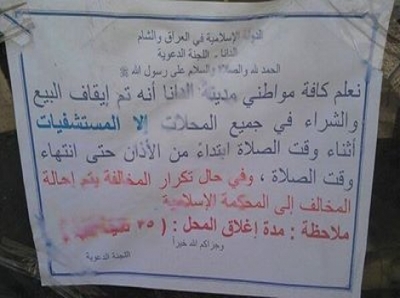 الدولة الإسلامية في العراق والشام
الدانا - اللجنة الدعوية
الحمد لله والصلاة والسلام على رسول الله ﷺ
نعلم كافة مواطني مدينة الدانا أنه تم إيقاف البيع
والشراء في جميع المحلات إلا المستشفيات
أثناء وقت الصلاة ابتداءً من الأذان حتى انتهاء
وقت الصلاة ، وفي حال تكرار المخالفة يتم إحالة
المخالف إلى المحكمة الإسلامية
ملاحظة : مدة إغلاق المحل : ( ٣٥
وجزاكم الله خيراً
اللجنة الدعوية